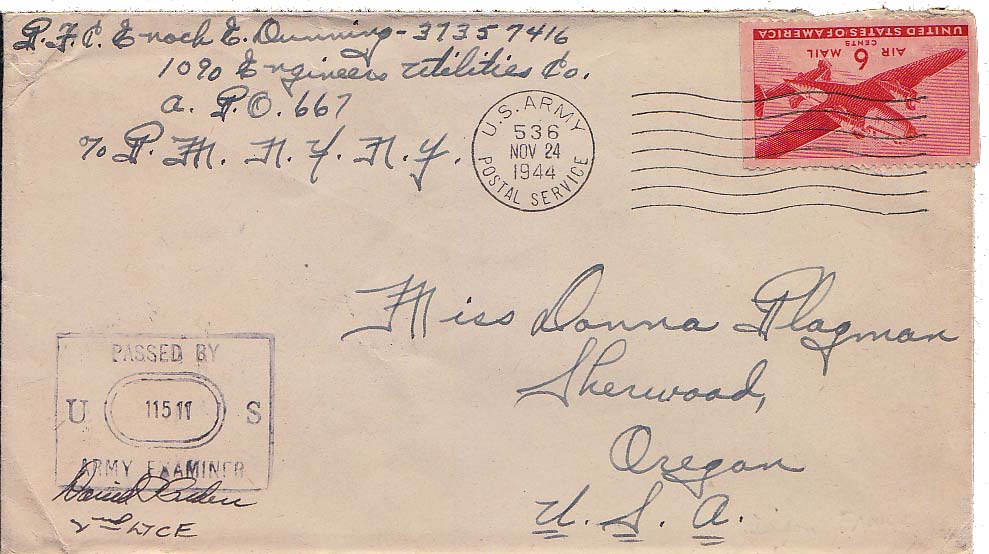 P.F.C. Enoch E. Dunning - 37357416
1090 Engineers Utilities Co.
A. P.O. 667
℅ P. M. N. Y. N. Y.
U.S. ARMY
536
NOV 24
1944
POSTAL SERVICE
UNITED STATES OF AMERICA
AIR 6 MAIL
CENTS
Miss Donna Plagman
Sherwood,
Oregon
U. S. A.
PASSED BY
U 11511 S
ARMY EXAMINER
2nd Lt CE